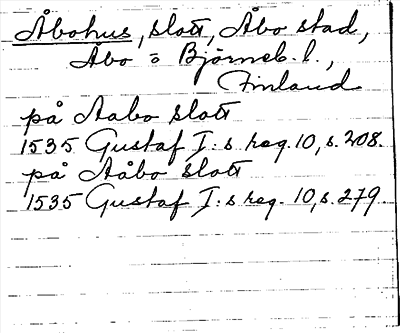 Åbohus, slott, Åbo stad,
Åbo o Björneb. l.,
Finland
på Aabo slott
1535 Gustaf I:s reg. 10, s. 208.
på Aåbo slott
1535 Gustaf I:s reg. 10, s. 279.